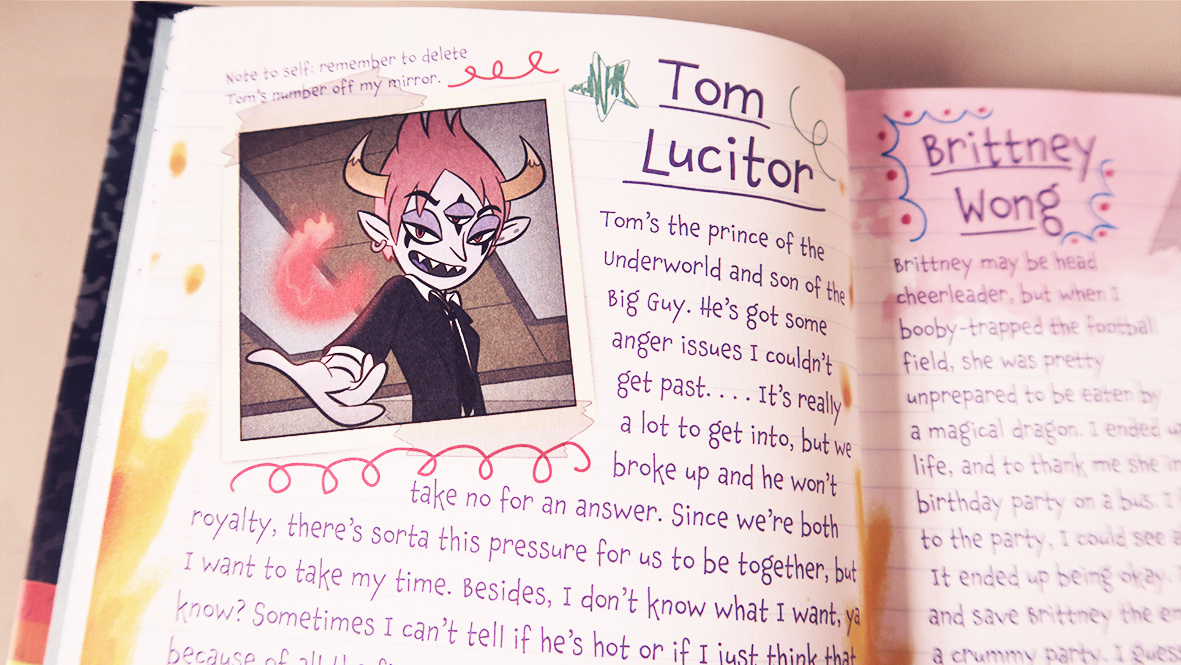 Note to self: remember to delete
Tom's number off my mirror.
Tom
Lucitor
Tom's the prince of the
underworld and son of the
Big Guy. He's got some
anger issues I couldn't
get past. . . . It's really
a lot to get into, but we
broke up and he won't
take no for an answer. Since we're both
royalty, there's sorta this pressure for us to be together, but
I want to take my time. Besides, I don't know what I want, ya
know? Sometimes I can't tell if he's hot or if I just think that
because of all the
Brittney
Wong
Brittney may be head
cheerleader, but when I
booby-trapped the football
field, she was pretty
unprepared to be eaten by
a magical dragon. I ended
life, and to thank me she
birthday party on a bus. I
to the party, I could see
It ended up being okay.
and save Brittney the
a crummy party. I guess